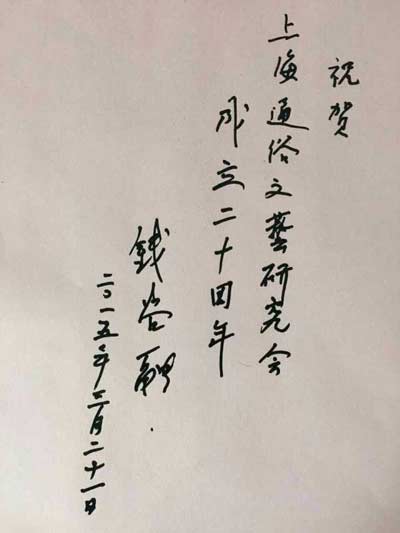 祝贺
上海通俗文藝研究会
成立二十四年
钱谷融
二〇一五年三月二十一日